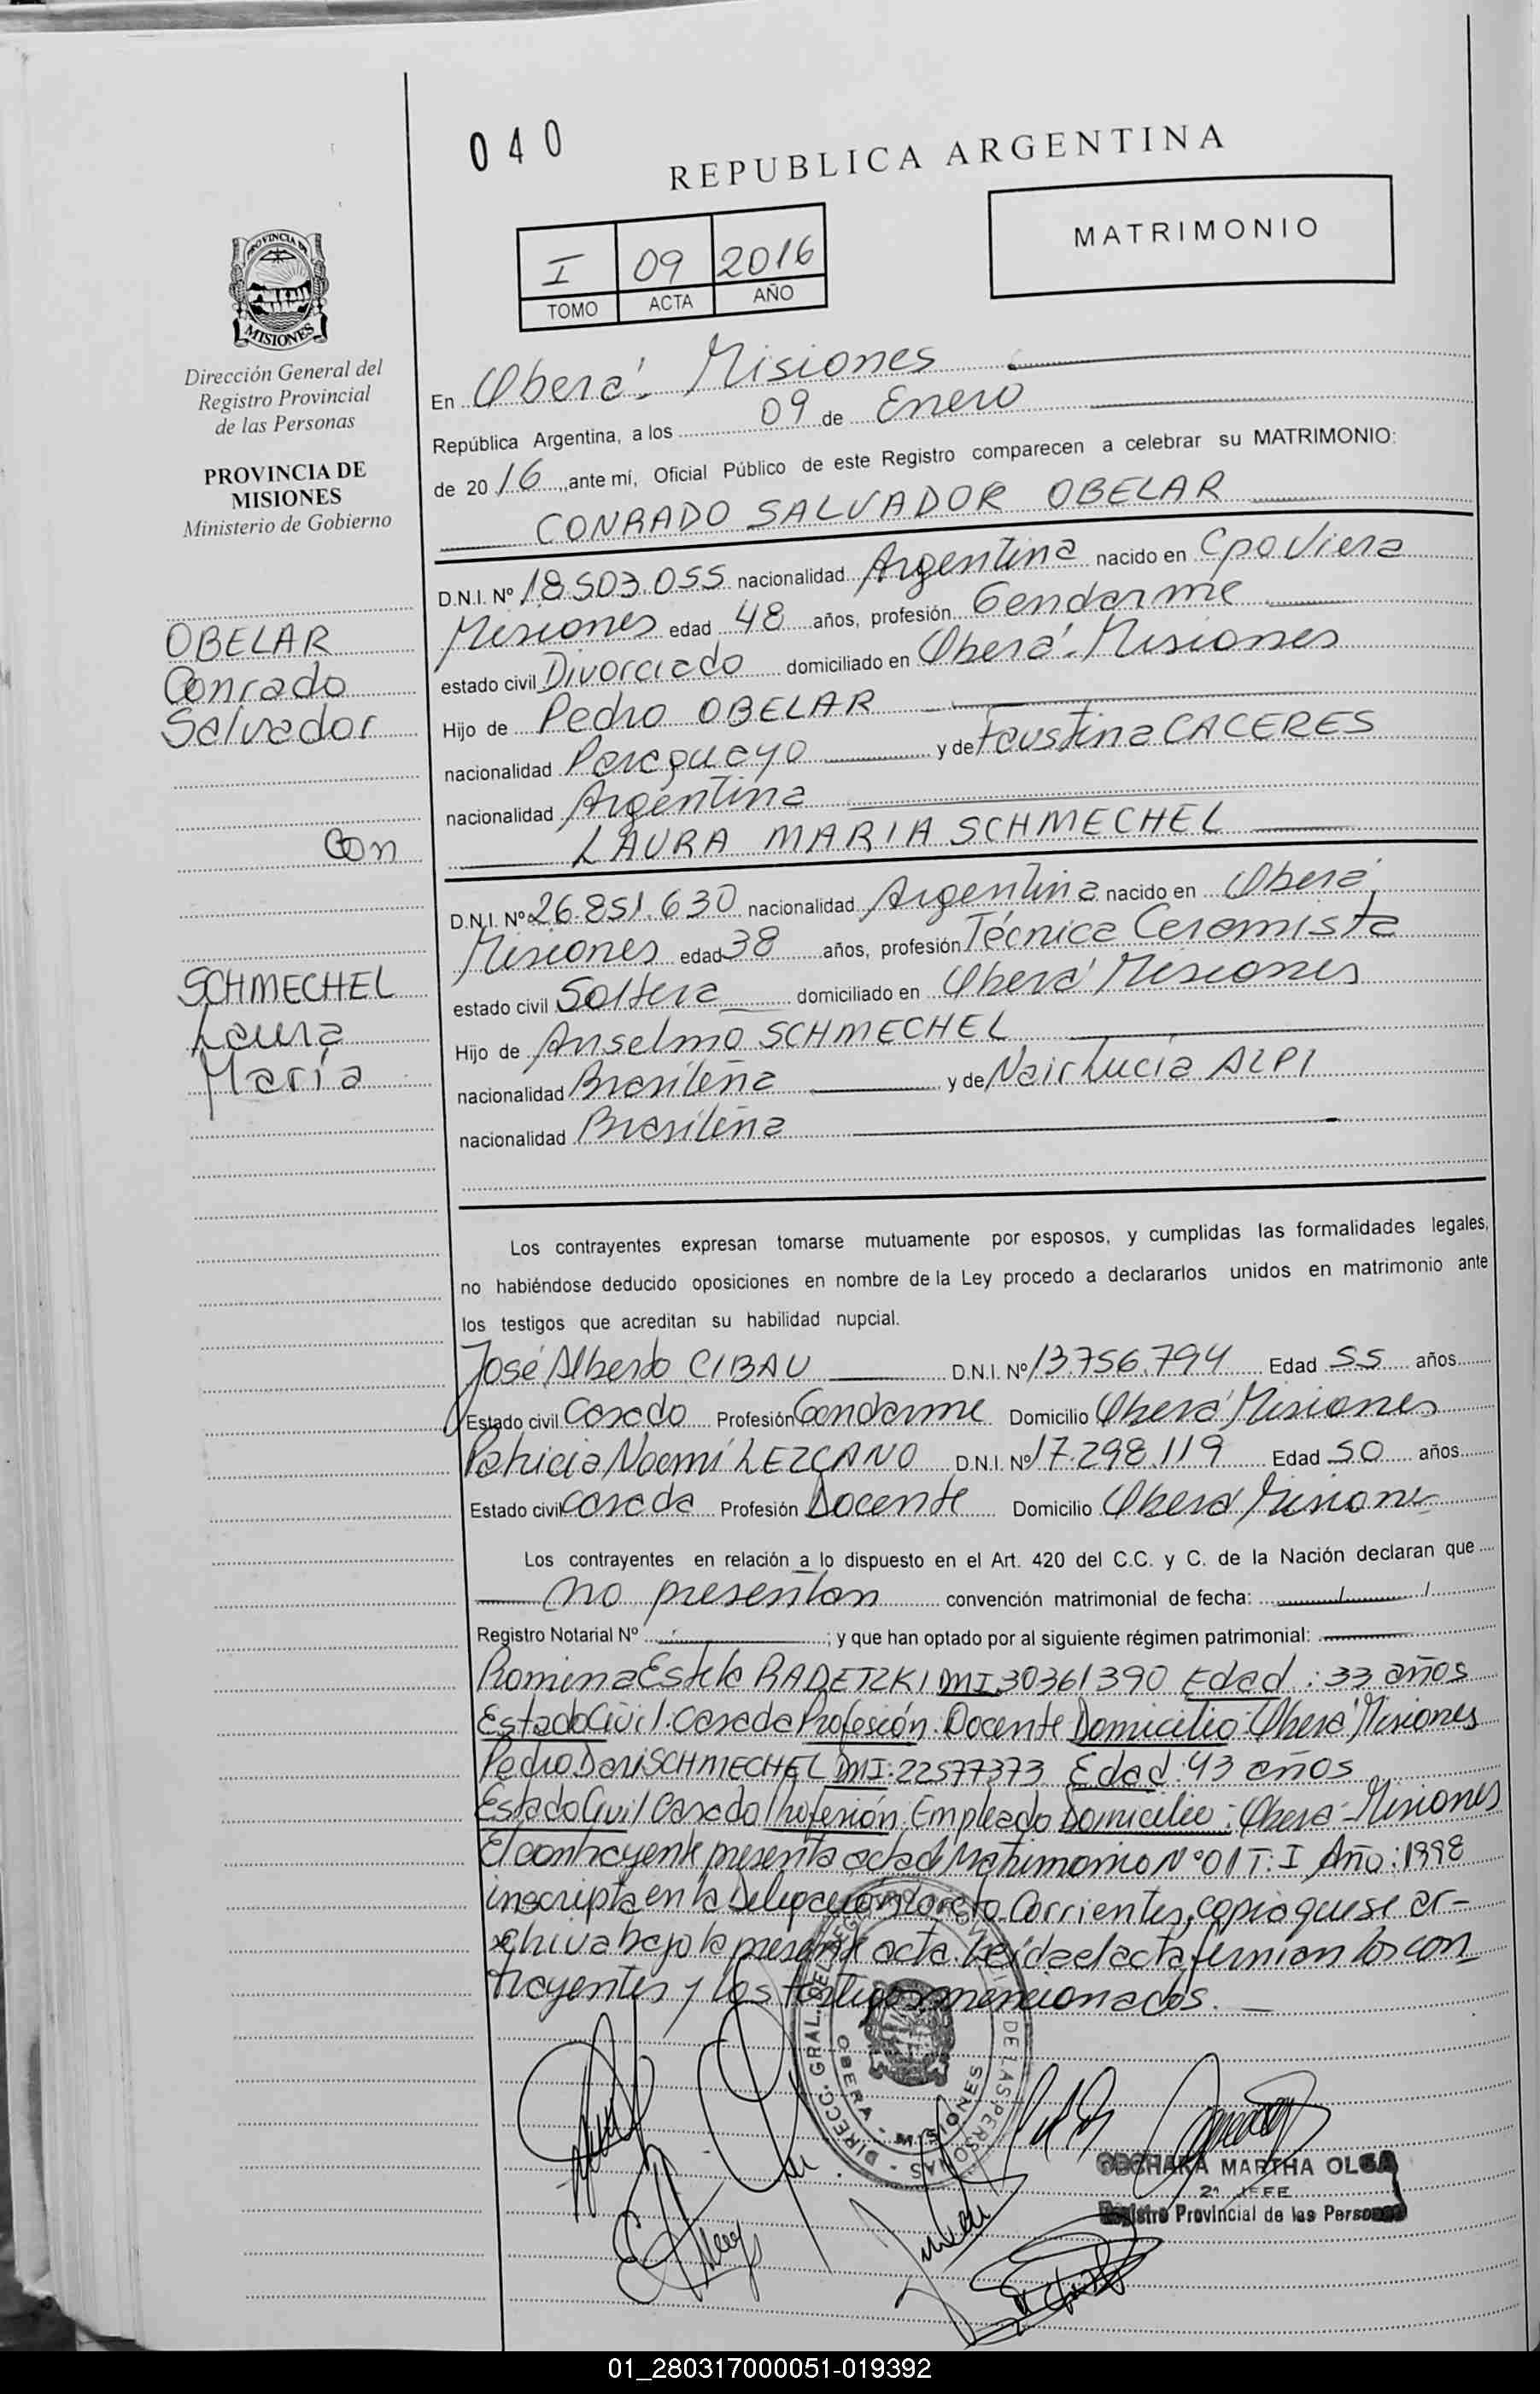 040
REPUBLICA ARGENTINA
MATRIMONIO
I 09 2016
TOMO ACTA AÑO
PROVINCIA DE
MISIONES
Dirección General del
Registro Provincial
de las Personas
PROVINCIA DE
MISIONES
Ministerio de Gobierno
OBELAR
Conrado
Salvador
Con
SCHMECHEL
Laura
María
En Oberá - Misiones
República Argentina, a los 09 de Enero
de 20 16 ,,ante mí, Oficial Público de este Registro comparecen a celebrar su MATRIMONIO:
CONRADO SALVADOR OBELAR
D.N.I. Nº 18.503.055 nacionalidad Argentina nacido en Cpo Viera
Misiones edad 48 años, profesión Gendarme
estado civil Divorciado domiciliado en Oberá - Misiones
Hijo de Pedro OBELAR
nacionalidad Paraguayo y de Faustina CACERES
nacionalidad Argentina
LAURA MARIA SCHMECHEL
D.N.I. Nº 26.851.630 nacionalidad Argentina nacido en Oberá,
Misiones edad 38 años, profesión Técnica Ceramista
estado civil Soltera domiciliado en Oberá Misiones
Hijo de Anselmo SCHMECHEL
nacionalidad Brasileña y de Nair Lucia ALPI
nacionalidad Brasileña
Los contrayentes expresan tomarse mutuamente por esposos, y cumplidas las formalidades legales,
no habiéndose deducido oposiciones en nombre de la Ley procedo a declararlos unidos en matrimonio ante
los testigos que acreditan su habilidad nupcial.
José Alberto CIBAU D.N.I. Nº 13.756.794 Edad 55 años
Estado civil Casado Profesión Gendarme Domicilio Oberá Misiones
Patricia Noemí LEZCANO D.N.I. Nº 17.298.119 Edad 50 años
Estado civil Casada Profesión Docente Domicilio Oberá Misiones
Los contrayentes en relación a lo dispuesto en el Art. 420 del C.C. y C. de la Nación declaran que
no presentan convención matrimonial de fecha: / /
Registro Notarial Nº ; y que han optado por al siguiente régimen patrimonial:
Romina Estela RADETZKI DNI 30361390 Edad: 33 años
Estado Civil: Casada Profesión: Docente Domicilio: Oberá Misiones
Pedro Dari SCHMECHEL DNI: 22577373 Edad: 43 años
Estado Civil Casado Profesión: Empleado Domicilio: Oberá - Misiones
El contrayente presenta acta de Matrimonio Nº 01 T: I Año: 1998
inscripta en la Delegación Loreto Corrientes, copia que se ar-
chiva bajo la presente acta. Leída el acta firman los con
trayentes y los testigos mencionados.
DIRECC. GRAL. DEL REG. DE LAS PERSONAS
OBERA - MISIONES
MARTHA OLGA
2º JEFE
Registro Provincial de las Personas
01_280317000051-019392